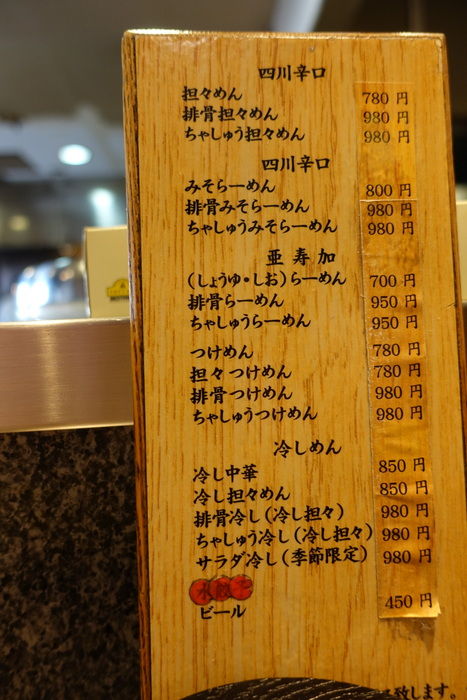 四川辛口
担々めん 780 円
排骨担々めん 980 円
ちゃしゅう担々めん 980 円
四川辛口
みそらーめん 800 円
排骨みそらーめん 980 円
ちゃしゅうみそらーめん 980 円
亜寿加
(しょうゆ・しお)らーめん 700 円
排骨らーめん 950 円
ちゃしゅうらーめん 950 円
つけめん 780 円
担々つけめん 780 円
排骨つけめん 980 円
ちゃしゅうつけめん 980 円
冷しめん
冷し中華 850 円
冷し担々めん 850 円
排骨冷し(冷し担々) 980 円
ちゃしゅう冷し(冷し担々) 980 円
サラダ冷し(季節限定) 980 円
ビール 450 円
致します。